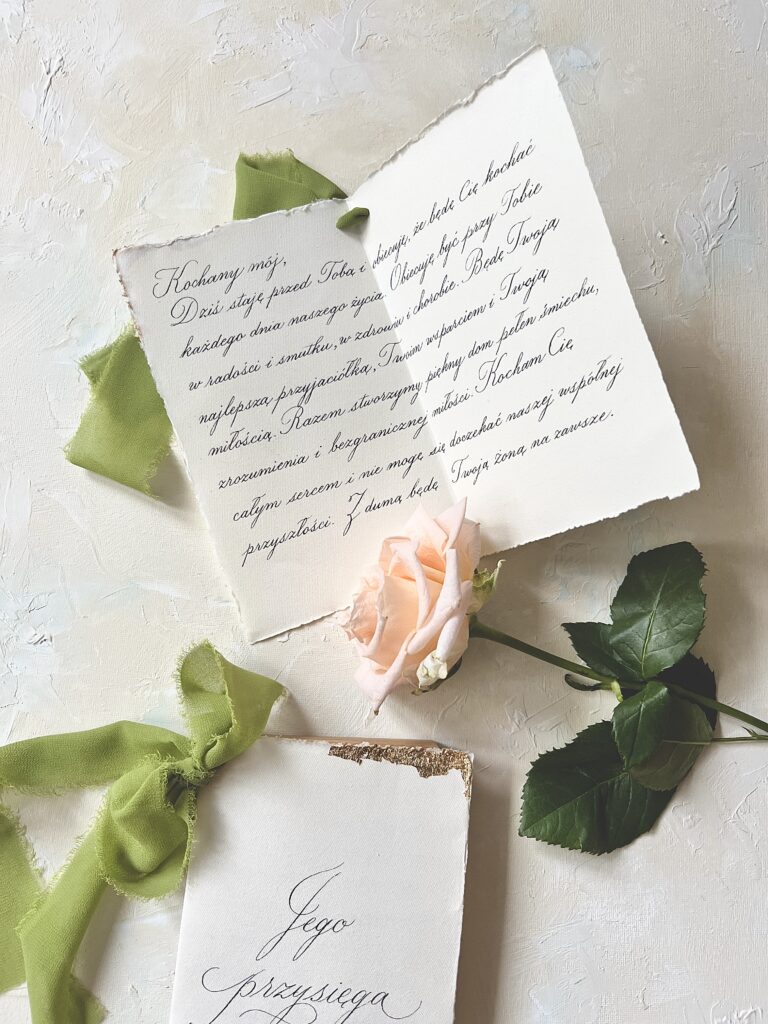 Kochany mój,
Dziś staję przed Tobą i obiecuję, że będę Cię kochać
każdego dnia naszego życia. Obiecuję być przy Tobie
w radości i smutku, w zdrowiu i chorobie. Będę Twoją
najlepszą przyjaciółką, Twoim wsparciem i Twoją
miłością. Razem stworzymy piękny dom pełen śmiechu,
zrozumienia i bezgranicznej miłości. Kocham Cię
całym sercem i nie mogę się doczekać naszej wspólnej
przyszłości. Z dumą będę Twoją żoną na zawsze.
Jego
przysięga